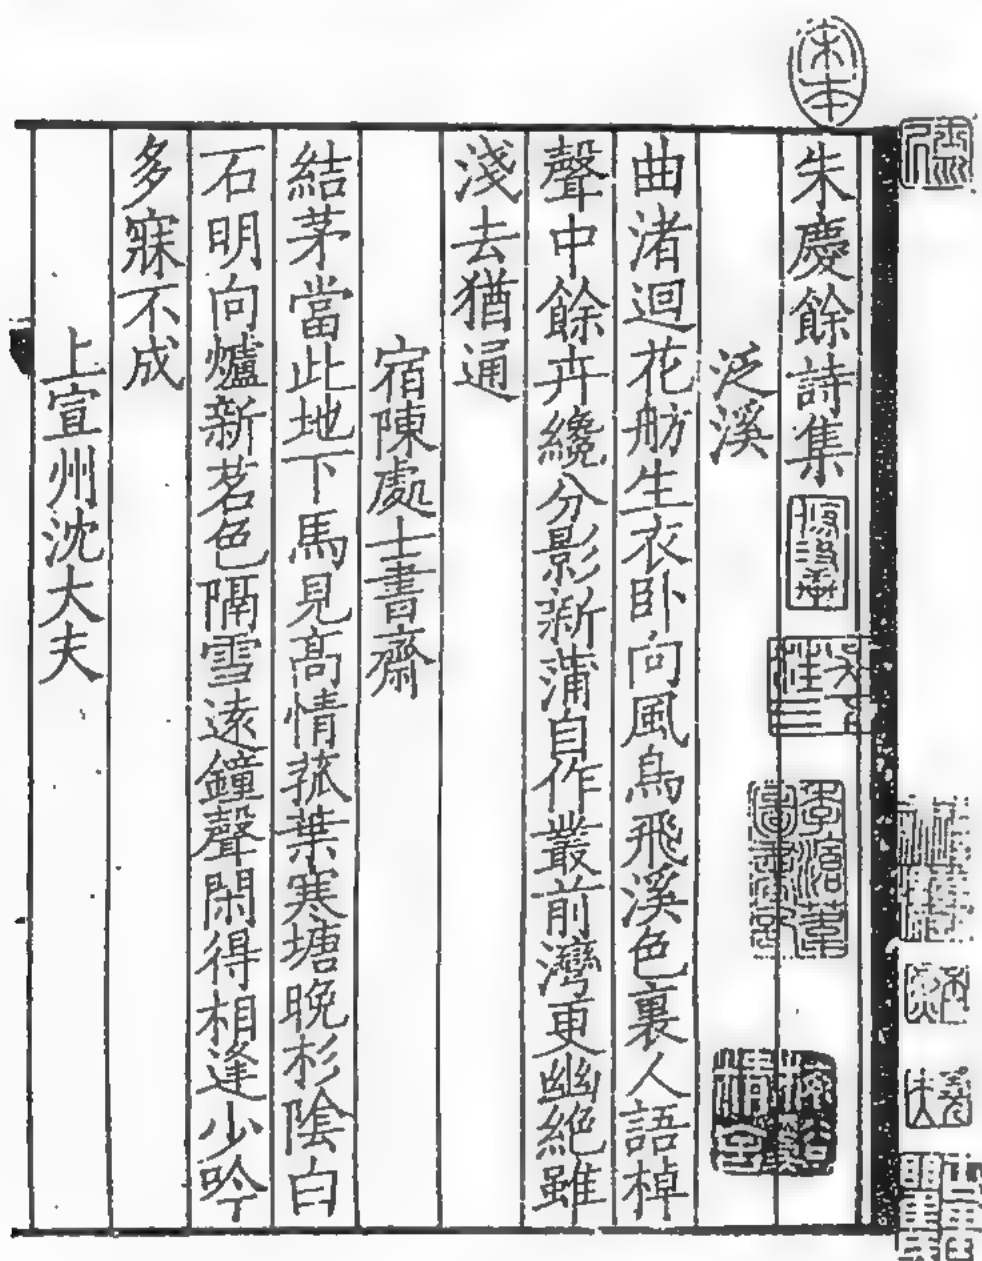 宋本
朱慶餘詩集
泛溪
曲渚迴花舫生衣卧向風鳥飛溪色裏人語棹
聲中餘卉纔分影新蒲自作叢前灣更幽絕雖
淺去猶通
宿陳處士書齋
結茅當此地下馬見高情菰葉寒塘晚杉陰白
石明向爐新茗色隔雪遠鐘聲閑得相逢少吟
多寐不成
上宣州沈大夫